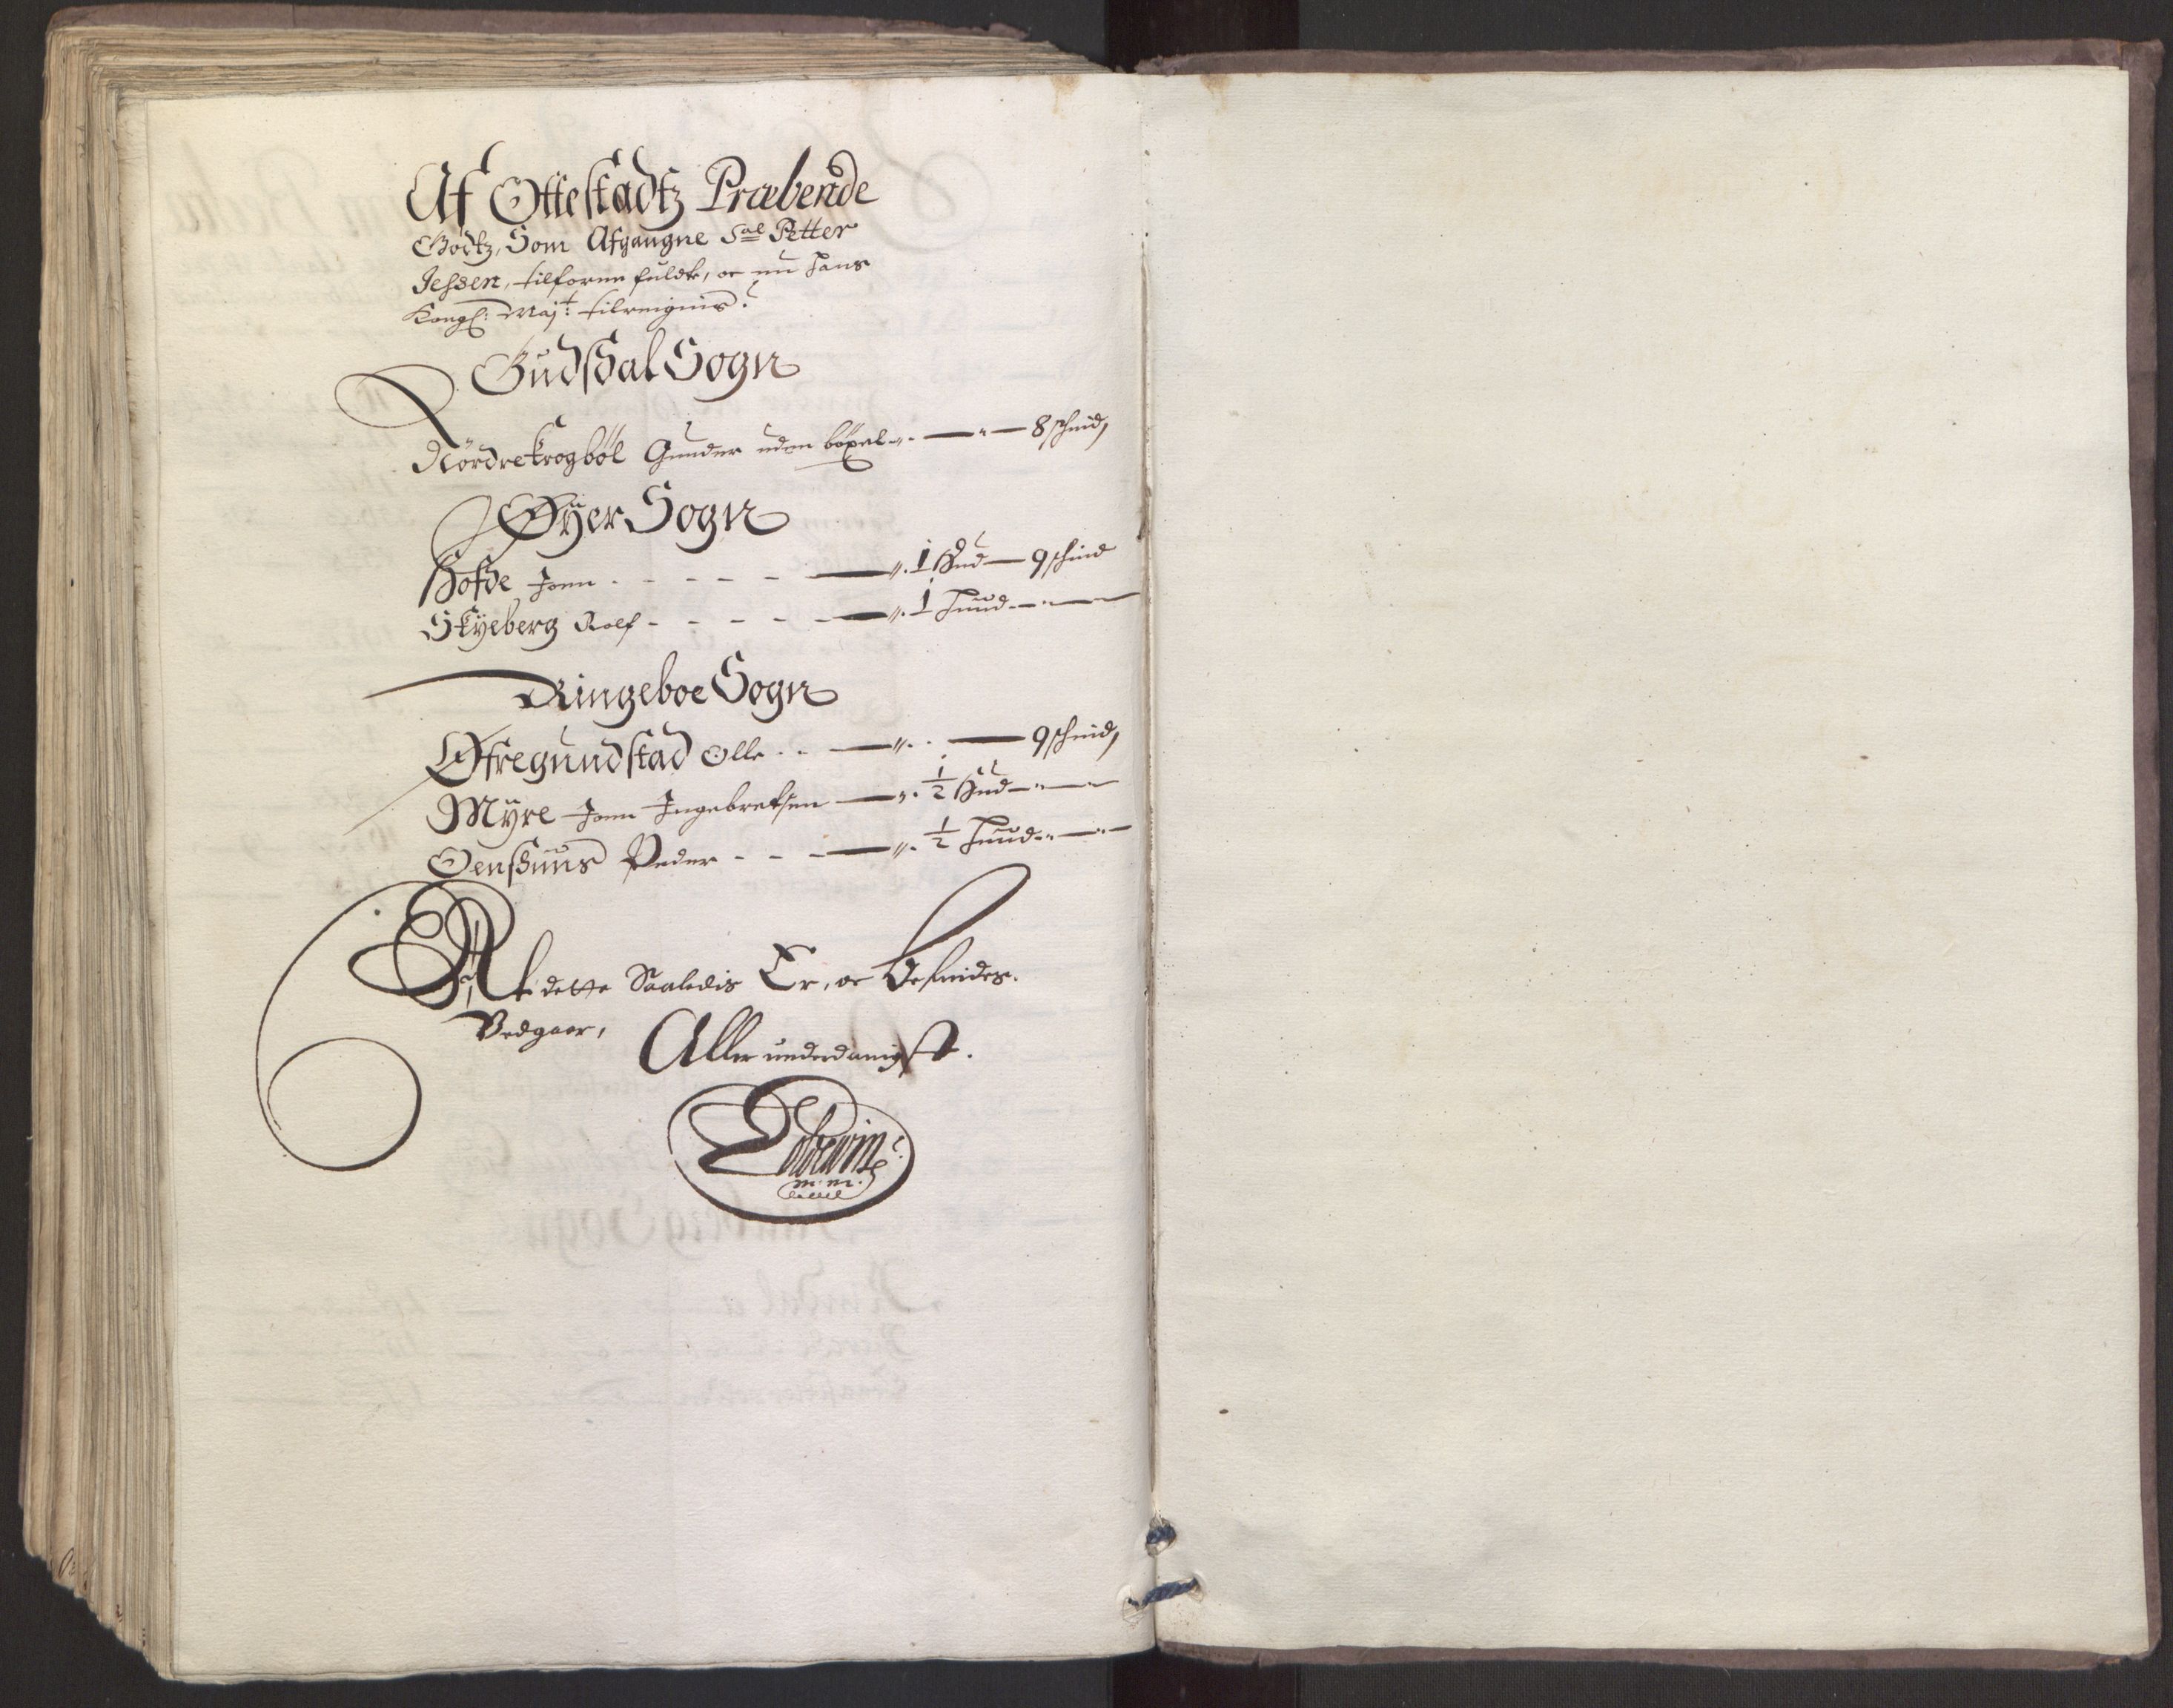 Af Ottestadtz Præbende
Godtz, Som Afgangne Sal Petter
Jessen, tilforne fuldte, oc nu Hans
Kongl: Maj:t tilreignis.
Gudsdal Sogn
Nördre Krogböl Gunder uden böxel — 8 schind,
Øÿer Sogn
Hofde Jonn - - - - - 1 Hud — 9 schind
Skÿeberg Rolf - - - - - 1 Huud
Ringeboe Sogn
Øfregundstad Olle - - 9 schind,
Mÿre Jonn Ingebretsen — 1/2 Hud
Oensuus Peder - - - 1/2 Huud
At dette Saaledis Er, oc Befindes.
Vedgaar,
Aller underdanigst.
m. m.